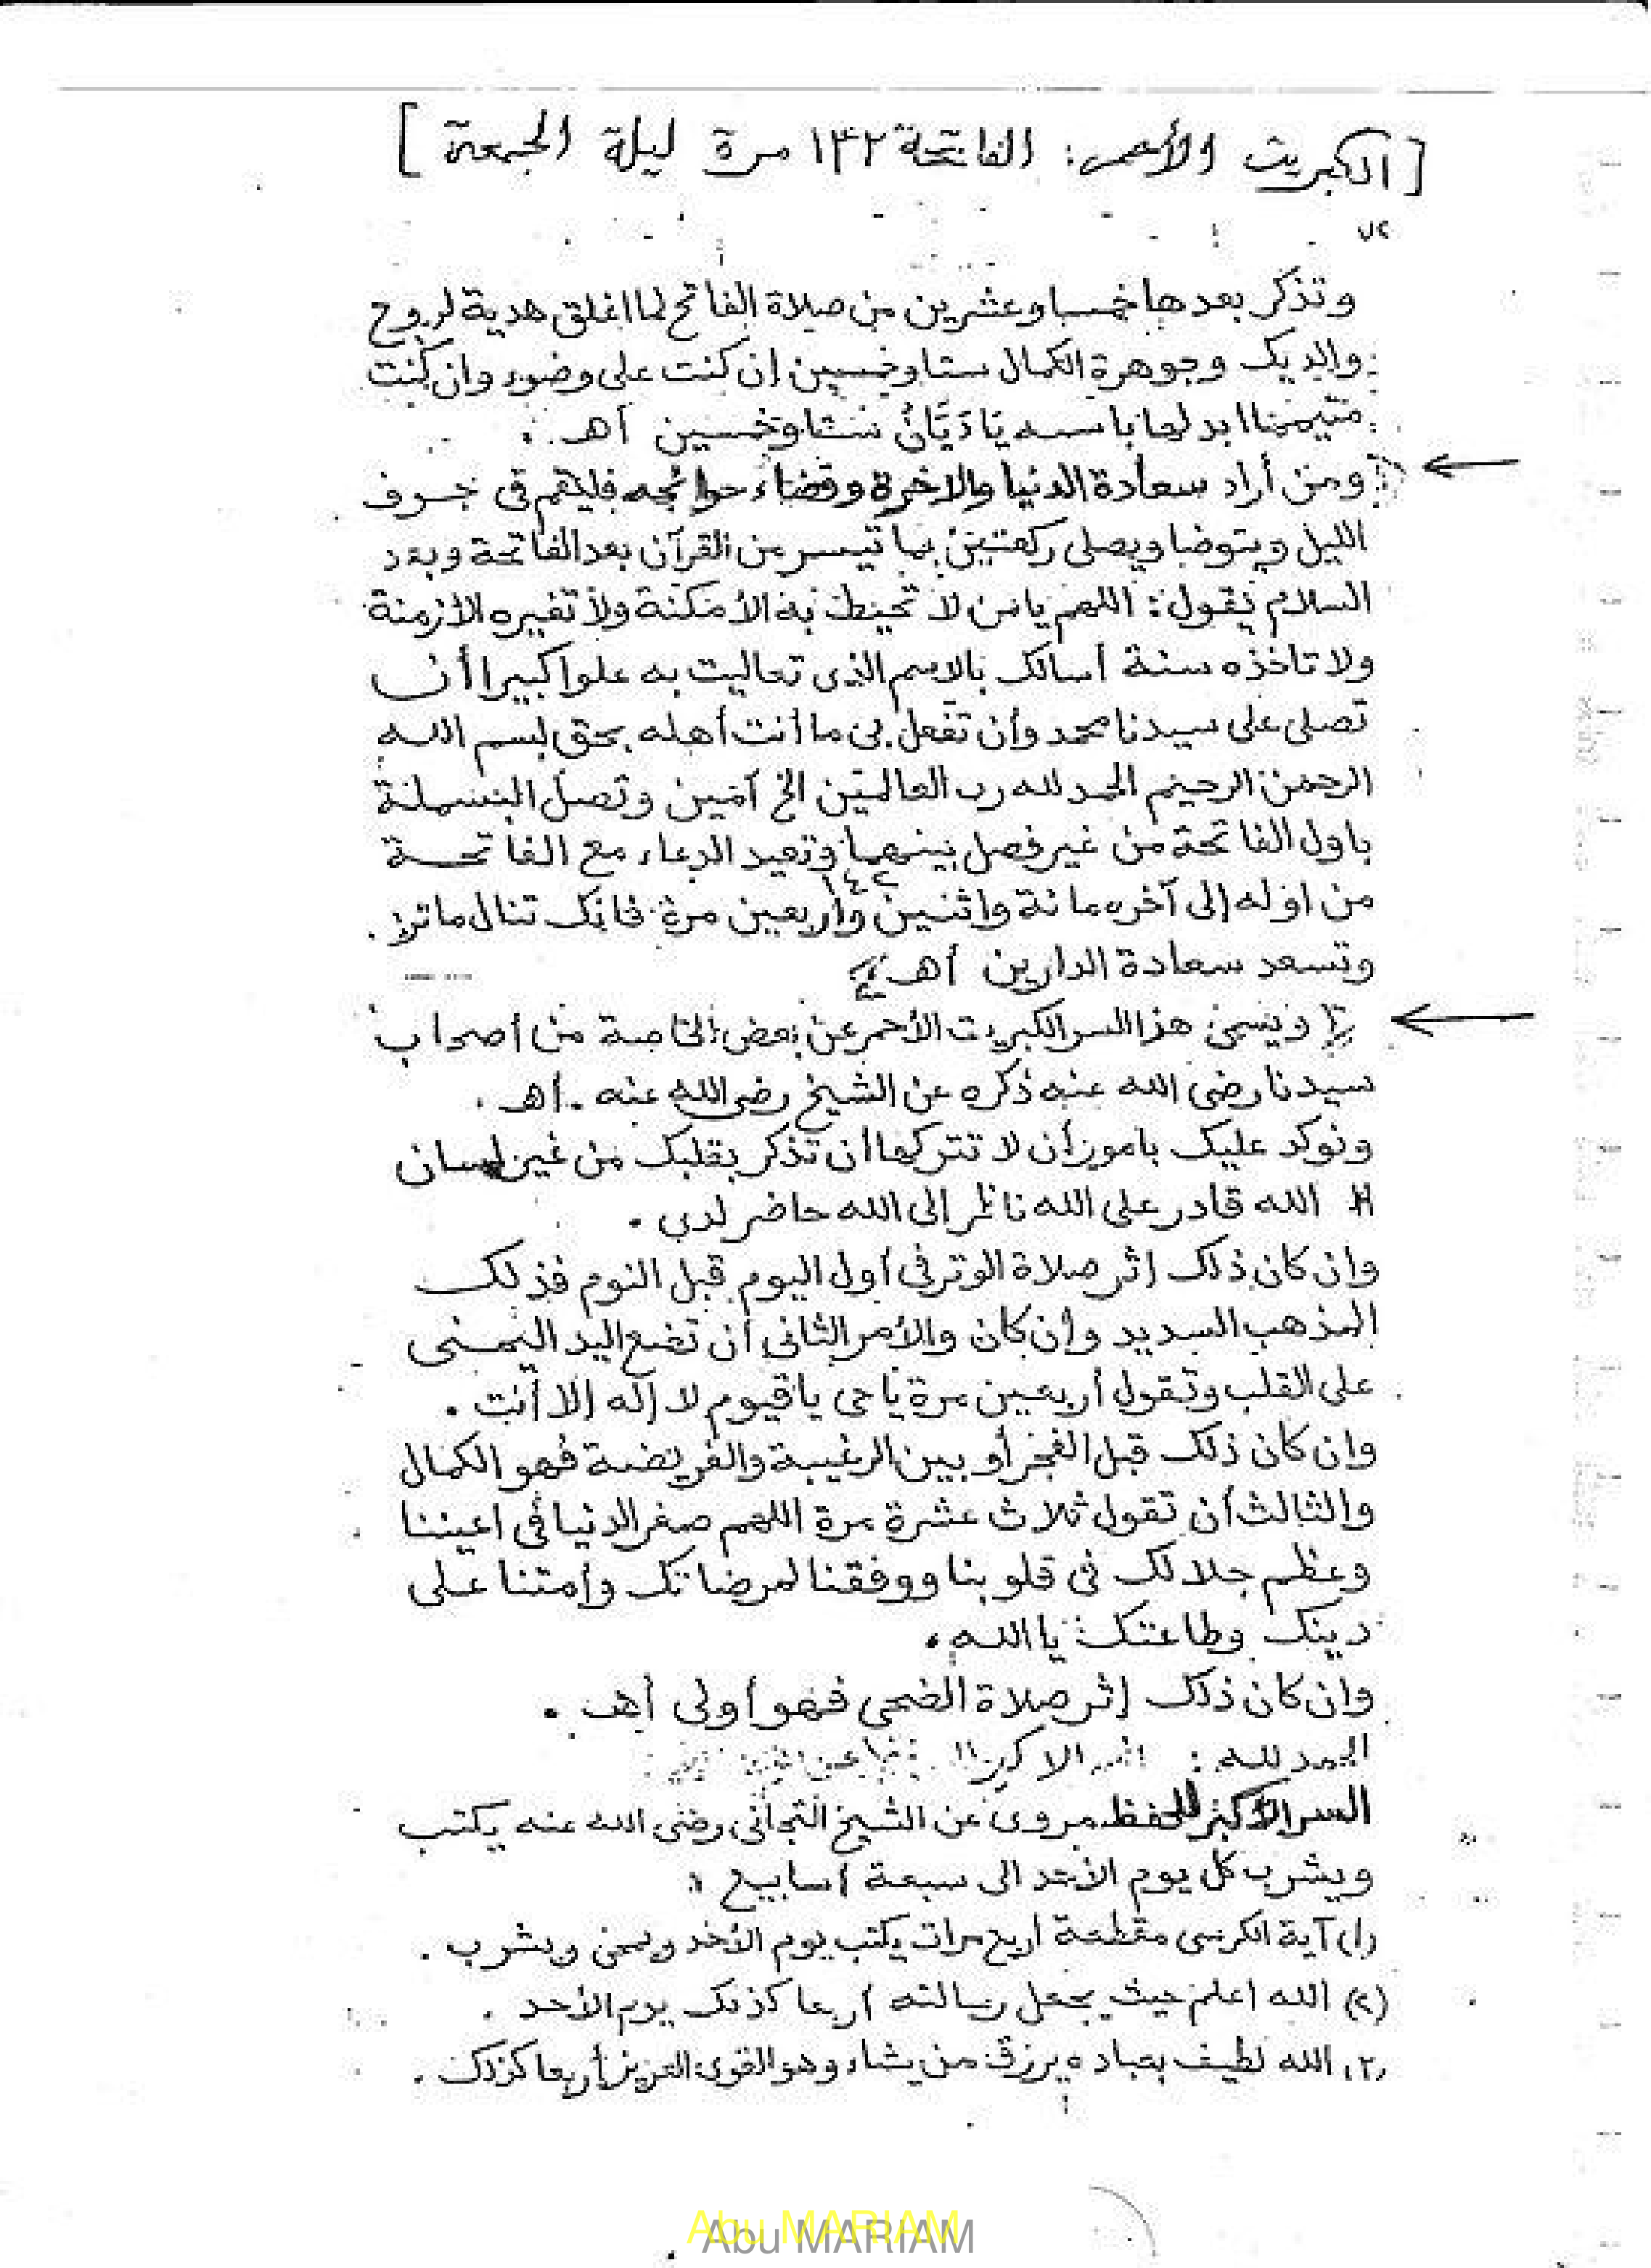 [الكبريت الأحمر: الفاتحة ١٤٢ مرة ليلة الجمعة]
٧٢
وتذكر بعدها خمسا وعشرين من صلاة الفاتح لما اغلق هدية لروح
والديك وجوهرة الكمال ستا وخمسين إن كنت على وضوء وان كنت
متيمما ابدلها باسمه يَا دَيَّانُ ستا وخمسين أهـ .
ومن أراد سعادة الدنيا والاخرة وقضاء حوائجه فليقم فى جوف
الليل ويتوضا ويصلى ركعتين بما تيسر من القرآن بعد الفاتحة وبعد
السلام يقول: اللهم يا من لا تحيط به الأمكنة ولا تغيره الازمنة
ولا تاخذه سنة أسالك بالاسم الذى تعاليت به علوا كبيرا أن
تصلى على سيدنا محمد وأن تفعل بى ما أنت أهله بحق بسم الله
الرحمن الرحيم الحمد لله رب العالمين الخ آمين وتصل البسملة
باول الفاتحة من غير فصل بينهما وتعيد الدعاء مع الفاتحة
١٤٢
من اوله إلى آخره مائة واثنين وأربعين مرة فانك تنال ما
وتسعد سعادة الدارين أهـ
ويسمى هذا السر الكبريت الأحمر عن بعض الخاصة من أصحاب
سيدنا رضى الله عنه ذكره عن الشيخ رضى الله عنه . أهـ .
ونوكد عليك بامور أن لا تتركها أن تذكر بقلبك من غير لسان
الله قادر على الله ناظر إلى الله حاضر لدى .
وان كان ذلك إثر صلاة الوتر فى أول اليوم قبل النوم فذلك
المذهب السديد وإن كان والأمر الثانى أن تضع اليد اليمنى
على القلب وتقول أربعين مرة يا حى يا قيوم لا إله إلا أنت .
وان كان ذلك قبل الفجر أو بين الرغيبة والفريضة فهو الكمال
والثالث أن تقول ثلاث عشرة مرة اللهم صغر الدنيا فى اعيننا
وعظم جلالك فى قلوبنا ووفقنا لمرضاتك وأمتنا على
دينك وطاعتك يا الله .
وان كان ذلك إثر صلاة الضحى فهو أولى أهـ .
الحمد لله :
السر الأكبر للحفظ مروى عن الشيخ التجانى رضى الله عنه يكتب
ويشرب كل يوم الأحد الى سبعة أسابيع :
(١) آية الكرسى مقطعة أربع مرات يكتب يوم الأحد ويمحى ويشرب .
(٢) الله اعلم حيث يجعل رسالته أربعا كذلك يوم الأحد .
٣) الله لطيف بعباده يرزق من يشاء وهو القوى العزيز أربعا كذلك .
Abu MARIAM